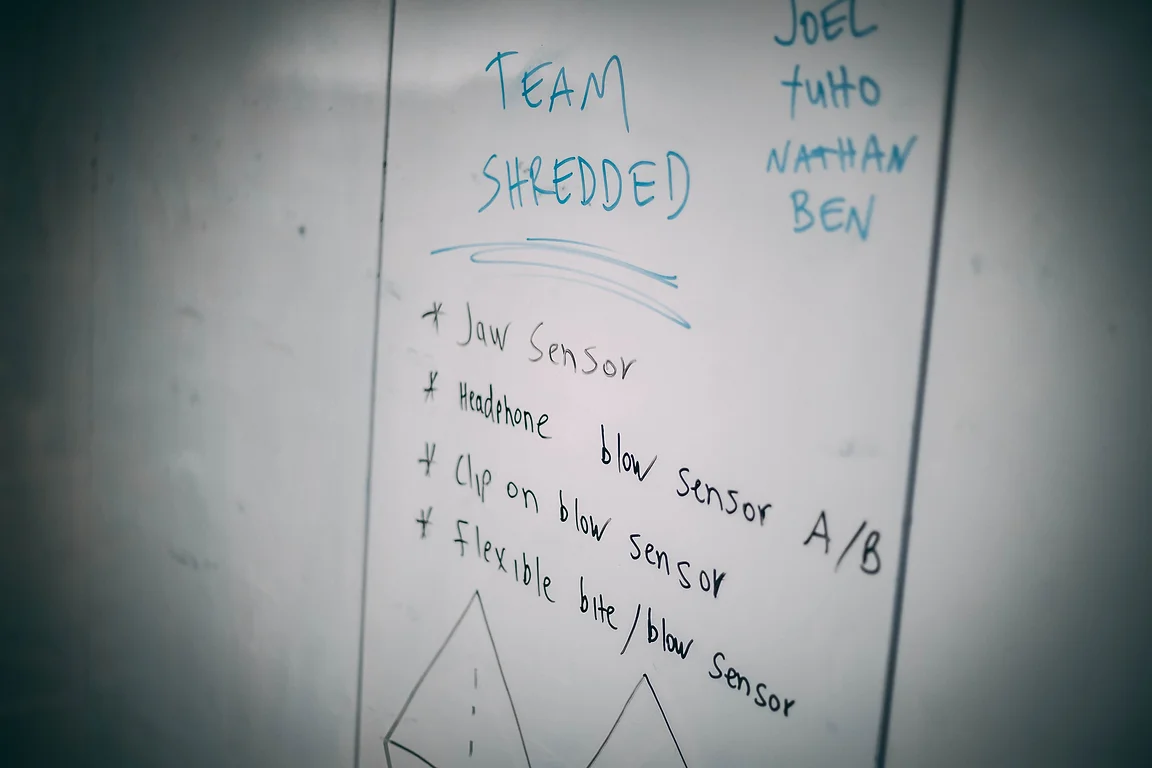 TEAM
SHREDDED
JOEL
tuHo
NATHAN
BEN
* Jaw Sensor
* Headphone blow sensor A/B
* Clip on blow sensor
* Flexible bite/blow sensor